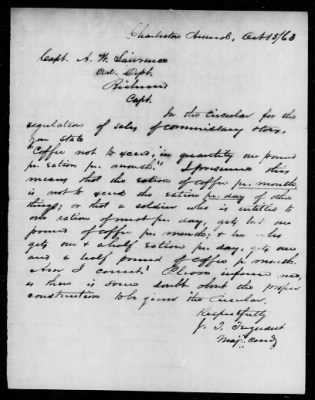 Charleston Arsenal, Oct 13/63
Capt. A. W. Lawrence
Ord. Dept.
Richmond
Capt.
In the Circular for the
regulation of sales of Commissary stores,
you state
"Coffee not to exceed, in quantity one pound
pr. ration pr. month." I presume this
means that the ration of coffee pr. month
is not to exceed the ration pr. day of other
things; or that a soldier who is entitled to
one ration of meat pr. day, gets but one
pound of coffee pr. month; & he who
gets one & a half ration pr. day, gets one
and a half pound of coffee pr. month.
Am I correct? Please inform me,
as there is some doubt about the proper
construction to be given the Circular.
Respectfully
J. T. Trezevant
Maj. Comdg